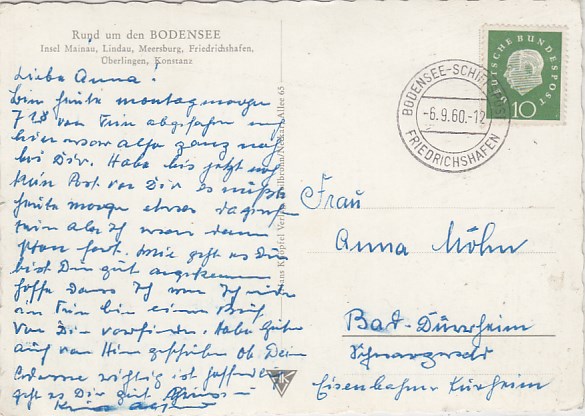 Rund um den BODENSEE
Insel Mainau, Lindau, Meersburg, Friedrichshafen,
Überlingen, Konstanz
Liebe Anna!
Bin heute montagmorgen
718 von abgefahren
hier war also ganz nah
bei Dir. Habe bis jetzt noch
kein Post von Dir es müßte
heute morge etwas
sein aber ich war dann
schon fort. Wie geht es Dir
bist Du gut angekommen
hoffe dass ich wen ich wider
bin einen Brief
von Dir vorfinde. Habe Gestern
auch von geschrieben ob Dein
richtig ist hoffendlich
geht es Dir gut Gruss
DEUTSCHE BUNDESPOST
10
BODENSEE-SCHIFFSPOST
-6.9.60.-12
FRIEDRICHSHAFEN
Frau
Anna Möhn
Bad-Dürrheim
Schwarzwald
Eisenbahner Kurheim
Allee 65